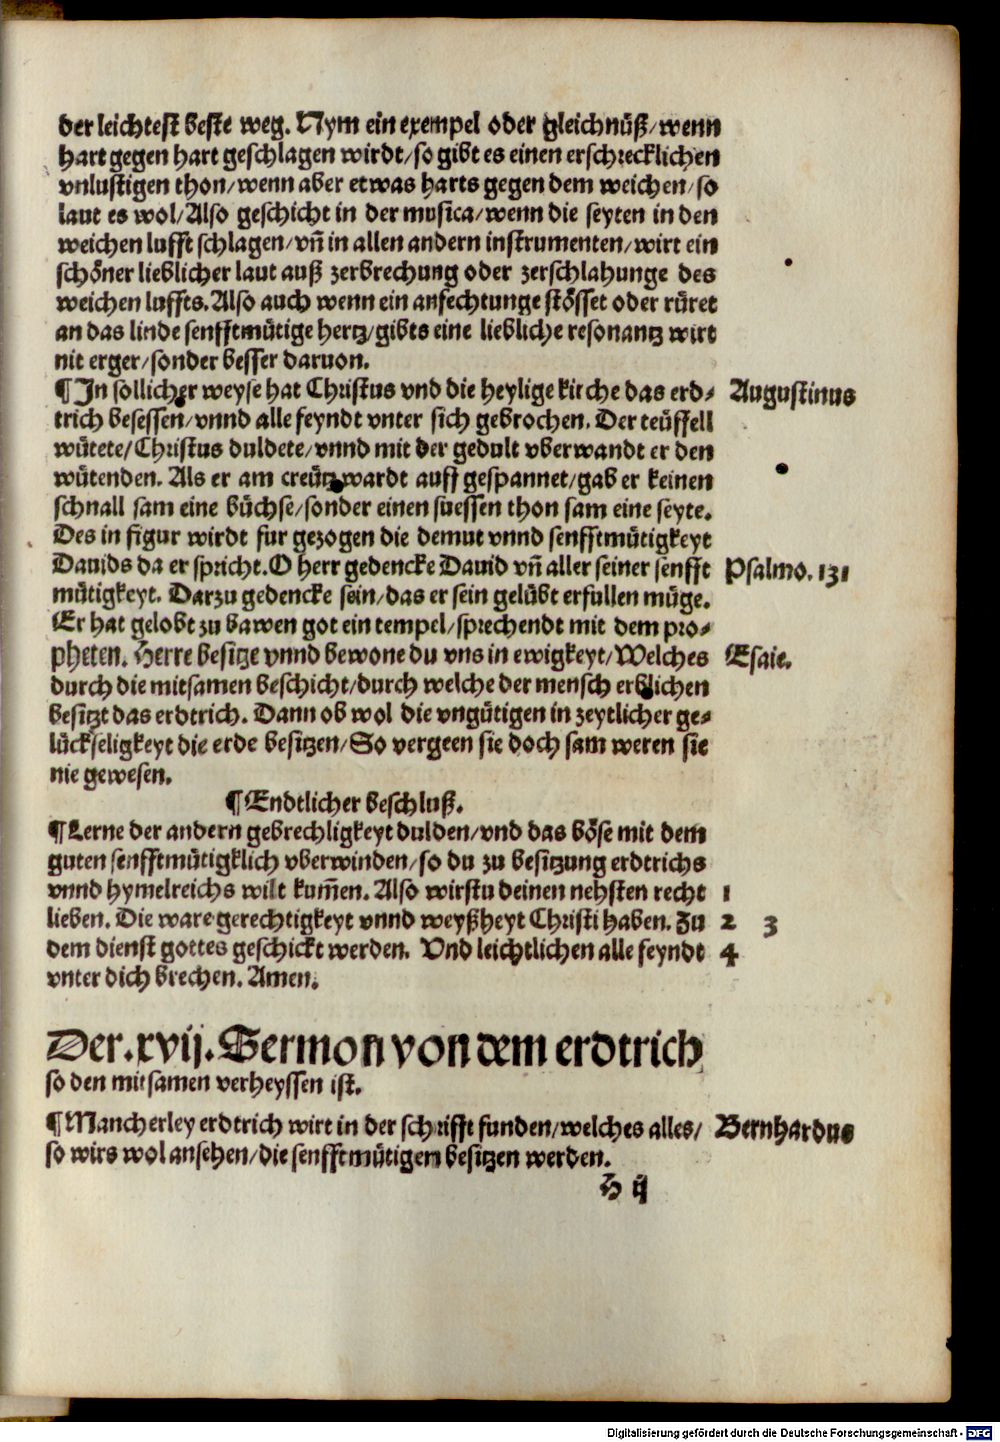 der leichtest beste weg. Nym ein exempel oder gleichnüß/wenn
hart gegen hart geschlagen wirdt/so gibt es einen erschrecklichen
vnlustigen thon/wenn aber etwas harts gegen dem weichen/so
laut es wol/Also geschicht in der musica/wenn die seyten in den
weichen lufft schlagen/vñ in allen andern instrumenten/wirt ein
schöner lieblicher laut auß zerbrechung oder zerschlahunge des
weichen luffts. Also auch wenn ein anfechtunge stösset oder rüret
an das linde senfftmütige hertz/gibts eine liebliche resonantz wirt
nit erger/sonder besser daruon.
¶ In sollicher weyse hat Christus vnd die heylige kirche das erd⸗ Augustinus
trich besessen/vnnd alle feyndt vnter sich gebrochen. Der teüffell
wütete/Christus duldete/vnnd mit der gedult vberwandt er den
wütenden. Als er am creütz wardt auff gespannet/gab er keinen
schnall sam eine büchse/sonder einen suessen thon sam eine seyte.
Des in figur wirdt fur gezogen die demut vnnd senfftmütigkeyt
Dauids da er spricht. O herr gedencke Dauid vñ aller seiner senfft Psalmo. 131
mütigkeyt. Darzu gedencke sein/das er sein gelübt erfullen müge.
Er hat gelobt zu bawen got ein tempel/sprechendt mit dem pro⸗
pheten. Herre besitze vnnd bewone du vns in ewigkeyt/Welches Esaie.
durch die mitsamen beschicht/durch welche der mensch erblichen
besitzt das erdtrich. Dann ob wol die vngütigen in zeytlicher ge⸗
lückseligkeyt die erde besitzen/So vergeen sie doch sam weren sie
nie gewesen.
¶ Endtlicher beschluß.
¶ Lerne der andern gebrechligkeyt dulden/vnd das böse mit dem
guten senfftmütigklich vberwinden/so du zu besitzung erdtrichs
vnnd hymelreichs wilt kum̃en. Also wirstu deinen nehsten recht 1
lieben. Die ware gerechtigkeyt vnnd weyßheyt Christi haben. Zu 2 3
dem dienst gottes geschickt werden. Vnd leichtlichen alle feyndt 4
vnter dich brechen. Amen.
Der .xvij. Sermon von dem erdtrich
so den mitsamen verheyssen ist.
¶ Mancherley erdtrich wirt in der schrifft funden/welches alles/ Bernhardus
so wirs wol ansehen/die senfftmütigen besitzen werden.
H ij
Digitalisierung gefördert durch die Deutsche Forschungsgemeinschaft - DFG